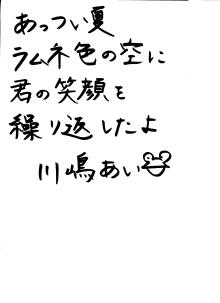 あっつい夏
ラムネ色の空に
君の笑顔を
繰り返したよ
川嶋あい